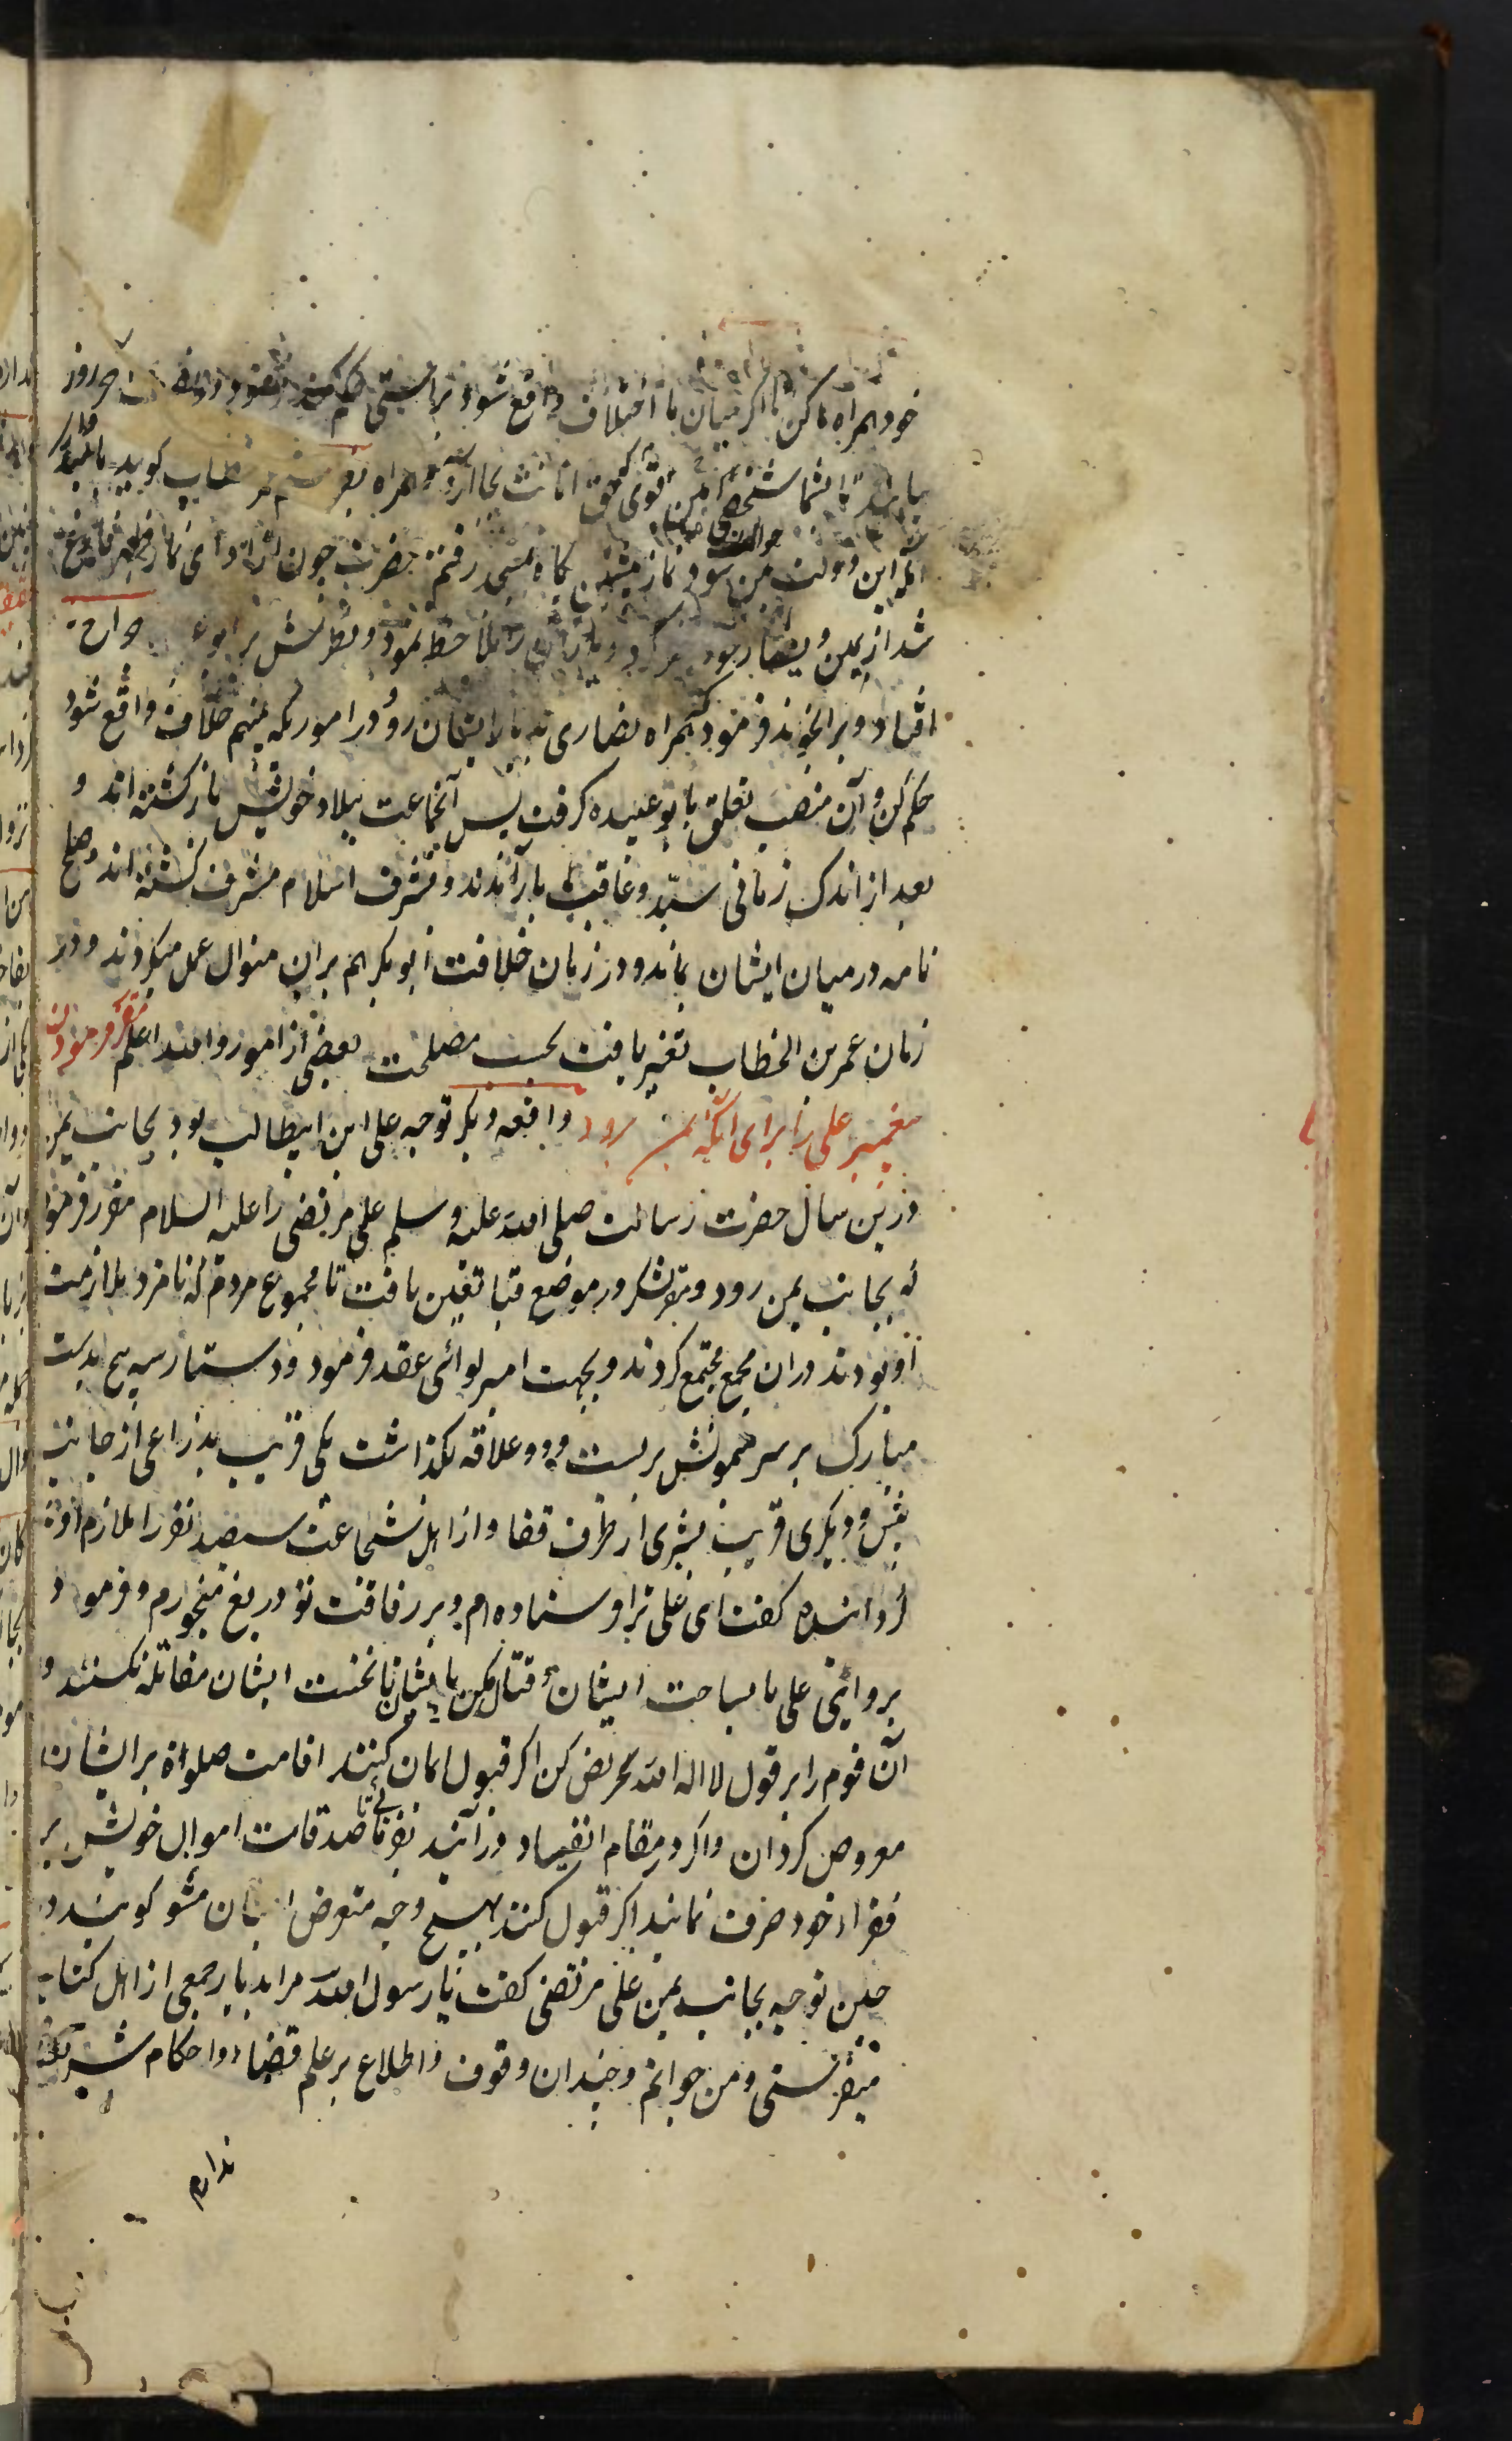 خود همراه ما کن تا اگر میان ما اختلاف واقع شود براستی حکم کند فرمود روز
با شما شخصی امین قوی که حق امانت بجا آرد همراه بفرستم عمر خطاب گوید
که این دولت من شود نماز پیشین بگاه بمسجد رفتم حضرت چون از ادای نماز ظهر فارغ
شد از یمین و یسار خود نظر کرد و یاران را ملاحظه نمود و نظرش بر ابو عبیده جراح
افتاد ویرا بخواند فرمود که همراه نصاری به بلاد ایشان رو و در اموریکه بینهم خلاف واقع شود
حکم کن و آن منصب تعلق بابو عبیده گرفت پس آنجماعت ببلاد خویش بازگشته اند و
بعد از اندک زمانی سید و عاقب باز آمدند و بشرف اسلام مشرف گشته اند و صلح
نامه در میان ایشان بماند و در زمان خلافت ابو بکر هم بران منوال عمل میکردند و در
زمان عمر بن الخطاب تغیر یافت بحسب مصلحت بعضی از امور والله اعلم مقرر فرمودن
پیغمبر علی را برای آنکه یمن رود واقعه دیگر توجه علی ابن ابیطالب بود بجانب یمن
درین سال حضرت رسالت صلی الله علیه وسلم علی مرتضی را علیه السلام مقرر فرمود
که بجانب یمن رود و مقر لشکر در موضع قبا تعین یافت تا مجموع مردم که نامزد ملازمت
او بودند دران مجمع مجتمع کردند و بجهت امیر لوائی عقد فرمود و دستار سه پیچ بدست
مبارک بر سر همونش بربست و دو علاقه بگذاشت یکی قریب بذراعی از جانب
پیش و دیگری قریب بشبری از طرف قفا و از اهل شجاعت سیصد نفر را ملازم او
گردانیده گفت ای علی ترا فرستاده ام و بر رفاقت تو دریغ میخورم و فرمود
برو ای علی تا بساحت ایشان و قتال مکن با ایشان تا نخست ایشان مقاتله نکنند و
آن قوم را بر قول لا اله الا الله تحریض کن اگر قبول ایمان کنند اقامت صلواة بر ایشان
معروض گردان و اگر در مقام انقیاد درآیند بفرمای تا صدقات اموال خویش بر
فقراء خود صرف نمایند اگر قبول کنند بهیچ وجه متعرض ایشان مشو گویند در
حین توجه بجانب یمن علی مرتضی گفت یا رسول الله مرا بدیار جمعی از اهل کتاب
میفرستی و من جوانم و چندان وقوف و اطلاع بر علم قضاء و احکام شریعت
ندارم